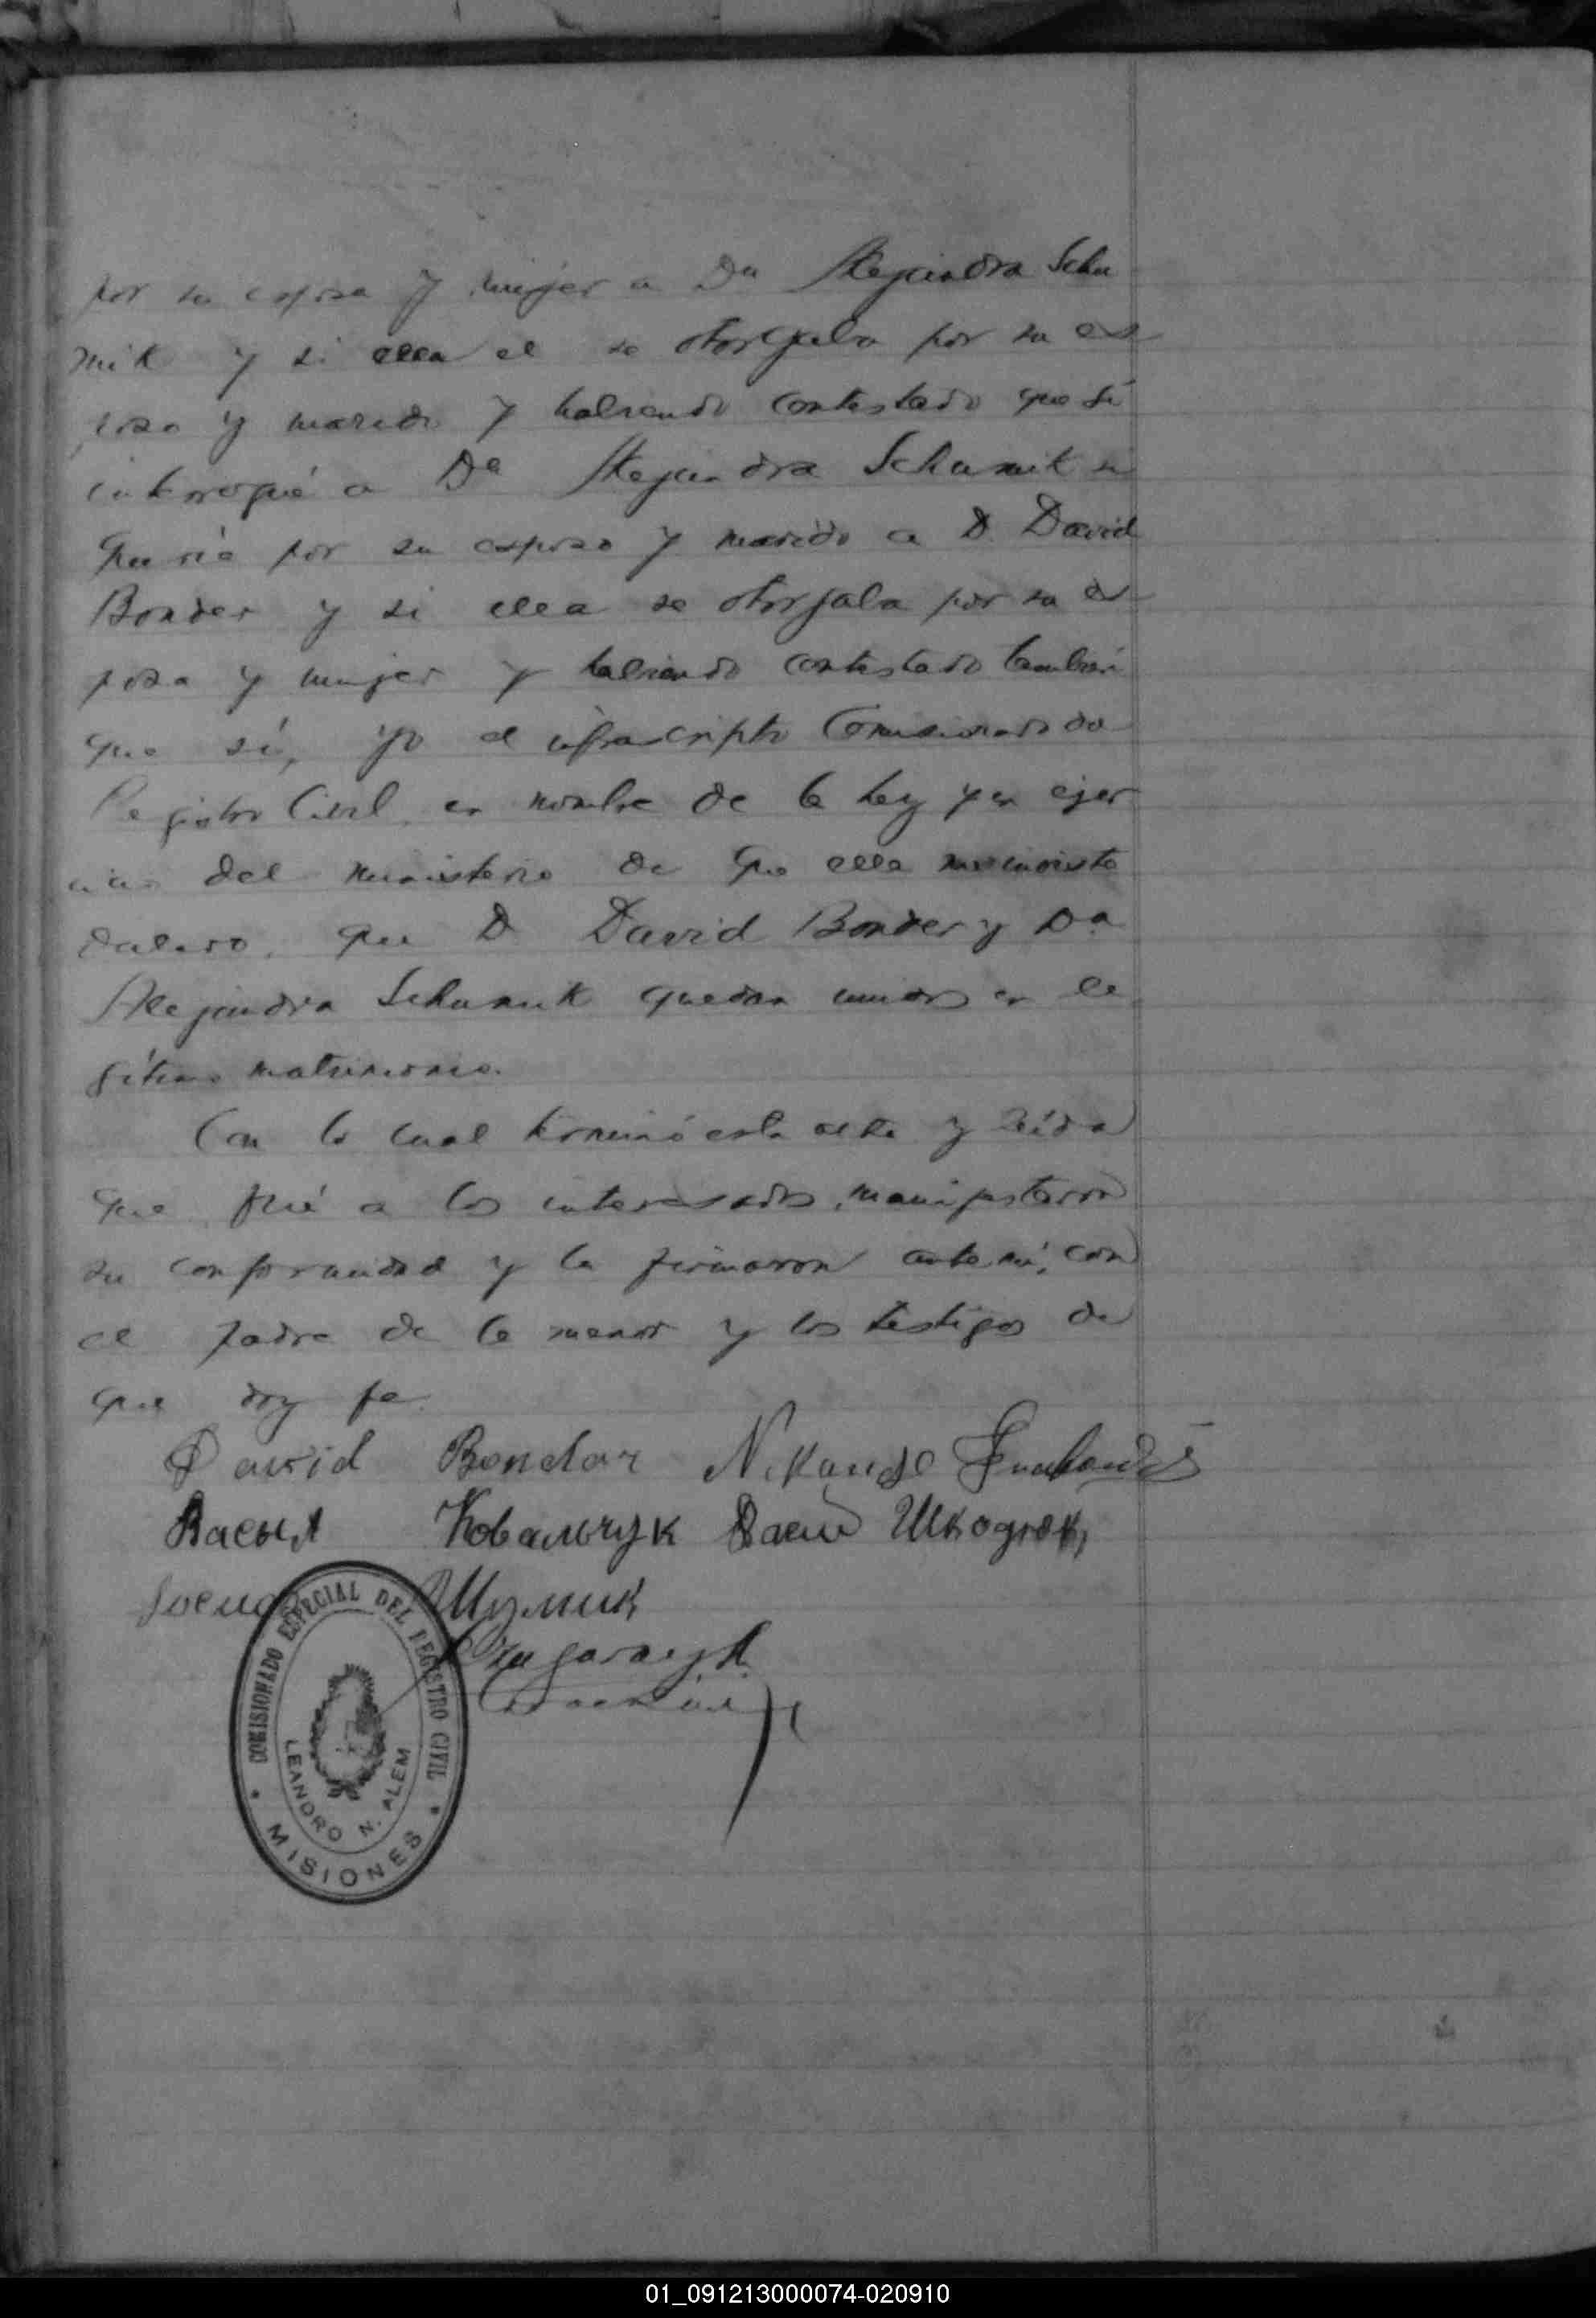 por su esposa y mujer a Da Alejandra Schu
mik y si ella el se otorgaba por su es
poso y marido y habiendo contestado que sí
interrogué a Da Alejandra Schumik si
quería por su esposo y marido a D. David
Bonder y si ella se otorgaba por su es
posa y mujer y habiendo contestado también
que sí, yo el infrascripto Comisionado do
Registro Civil, en nombre de la ley y en ejer
cicio del ministerio de que ella me inviste
declaro, que D David Bonder y Da
Alejandra Schumik quedan unidos en le
gítimo matrimonio.
Con lo cual terminó esta acta y leída
que fué a los interesados, manifestaron
su conformidad y la firmaron ante mí, con
el padre de la menor y los testigos de
que doy fe.
David Bondar
Васыл Ковальчук
Шумик
COMISIONADO ESPECIAL DEL REGISTRO CIVIL
LEANDRO N. ALEM
* MISIONES *
01_091213000074-020910